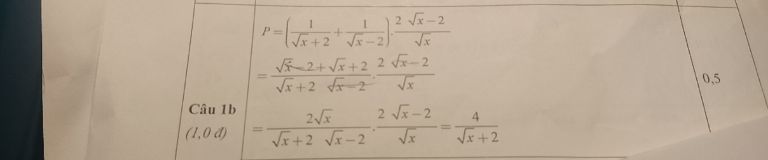 P = ( 1/(√x + 2) + 1/(√x − 2) ) . (2 √x − 2)/√x
= (√x − 2 + √x + 2)/(√x + 2 √x − 2) . (2 √x − 2)/√x
0,5
Câu 1b
(1,0 đ)
= 2√x/(√x + 2 √x − 2) . (2 √x − 2)/√x = 4/(√x + 2)